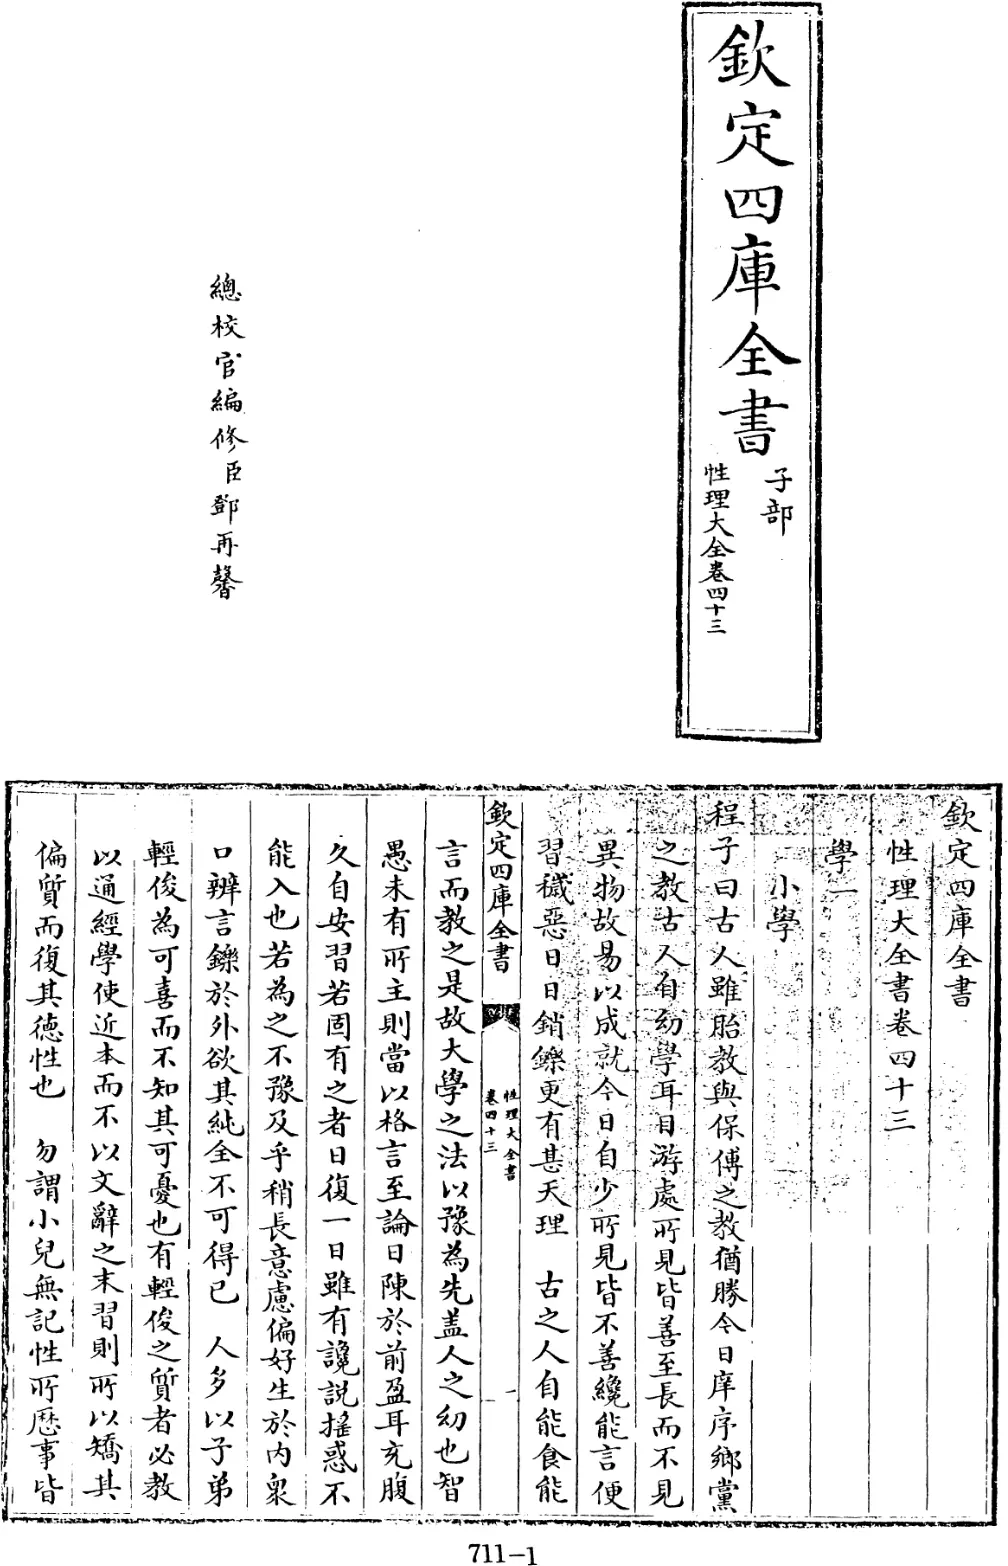 欽定四庫全書
子部
性理大全卷四十三
總校官編修臣鄧再馨
欽定四庫全書
性理大全書卷四十三
學一
小學
程子曰古人雖胎教與保傅之教猶勝今日庠序鄉黨
之教古人自幼學耳目游處所見皆善至長而不見
異物故易以成就今日自少所見皆不善纔能言便
習穢惡日日銷鑠更有甚天理 古之人自能食能
欽定四庫全書
性理大全書
卷四十三
一
言而教之是故大學之法以豫為先盖人之幼也智
愚未有所主則當以格言至論日陳於前盈耳充腹
久自安習若固有之者日復一日雖有讒説搖惑不
能入也若為之不豫及乎稍長意慮偏好生於内衆
口辨言鑠於外欲其純全不可得已 人多以子弟
輕俊為可喜而不知其可憂也有輕俊之質者必教
以通經學使近本而不以文辭之末習則所以矯其
偏質而復其徳性也 勿謂小兒無記性所歴事皆
711-1